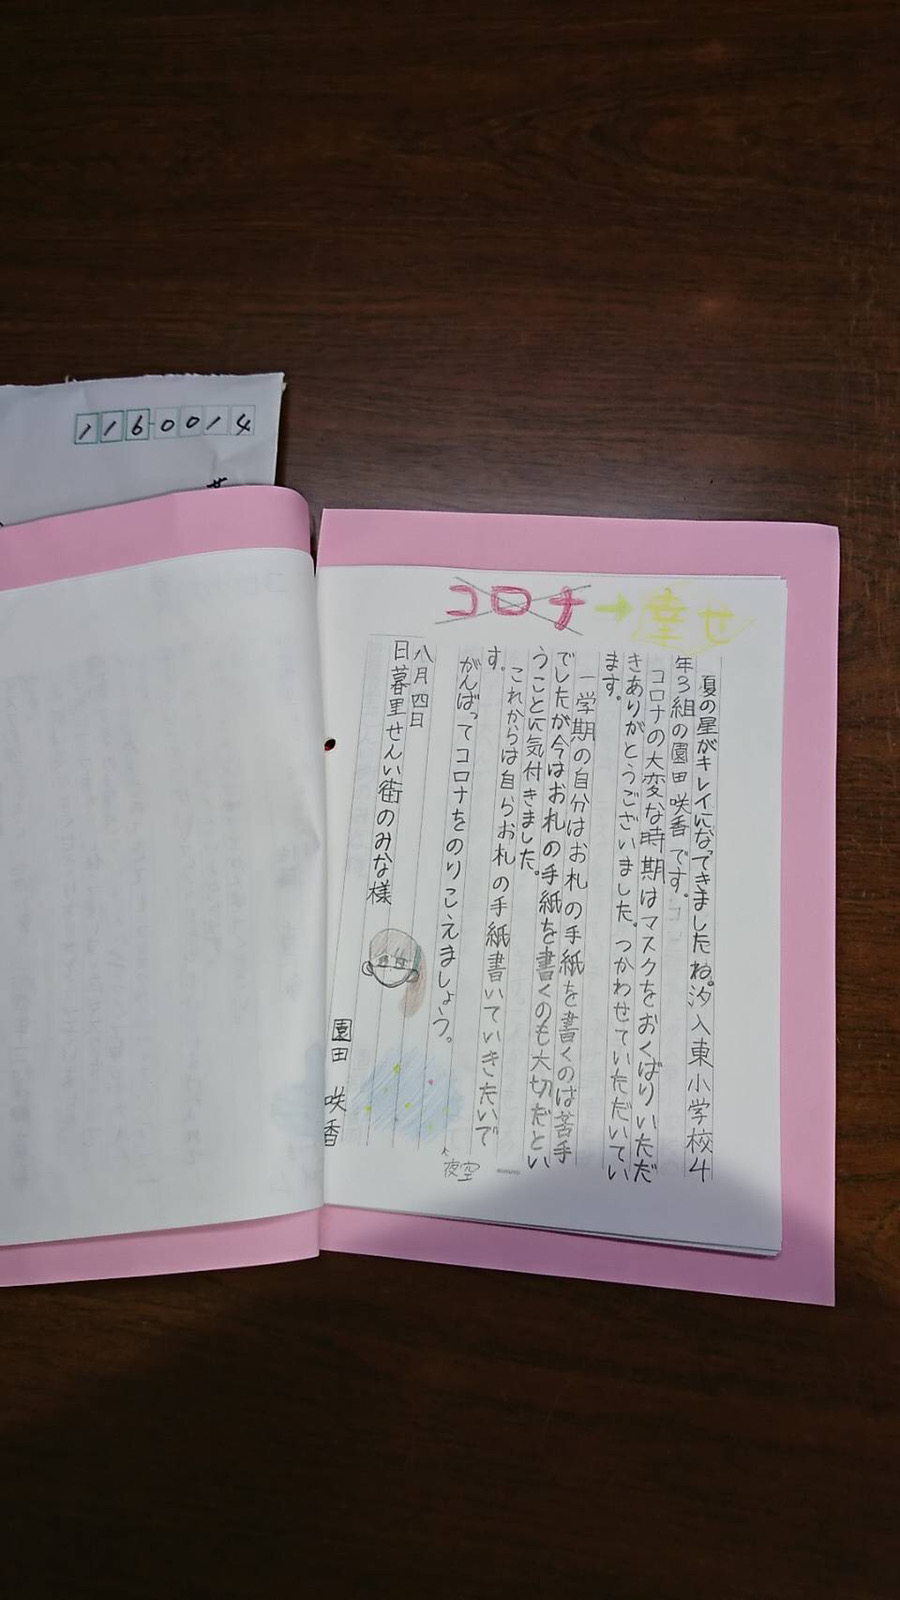 1160014
コロナ→幸せ
夏の星がキレイになってきましたね。汐入東小学校4
年3組の園田 咲香です。
コロナの大変な時期はマスクをおくばりいただ
きありがとうございました。つかわせていただいてい
ます。
一学期の自分はお札の手紙を書くのは苦手
でしたが今はお札の手紙を書くのも大切だとい
うことに気付きました。
これからは自らお札の手紙書いていきたいで
す。
がんばってコロナをのりこえましょう。
八月四日
日暮里せんい街のみな様
園田 咲香
夜空